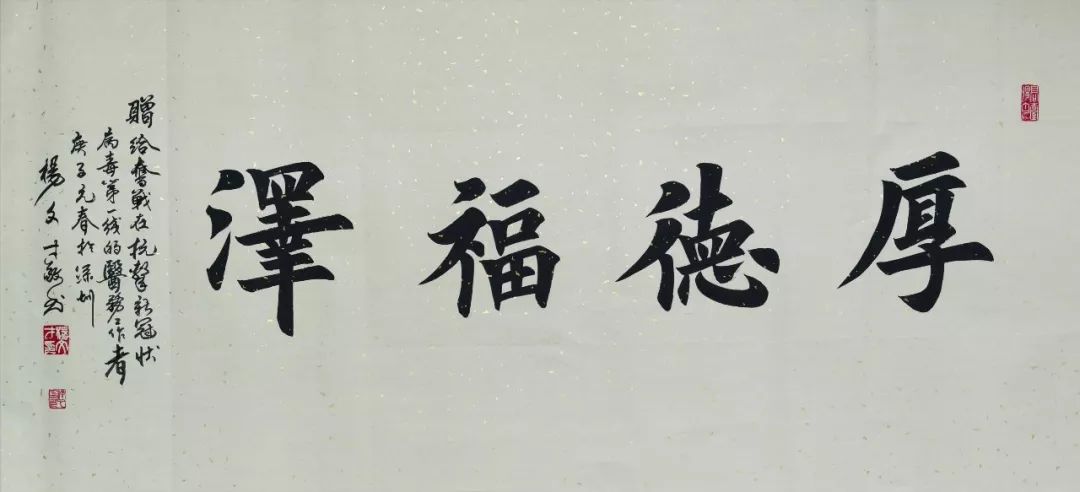 厚德福澤
贈给奮戰在抗擊新冠狀
病毒第一线的醫務工作者
庚子元春於深圳
楊文才敬书